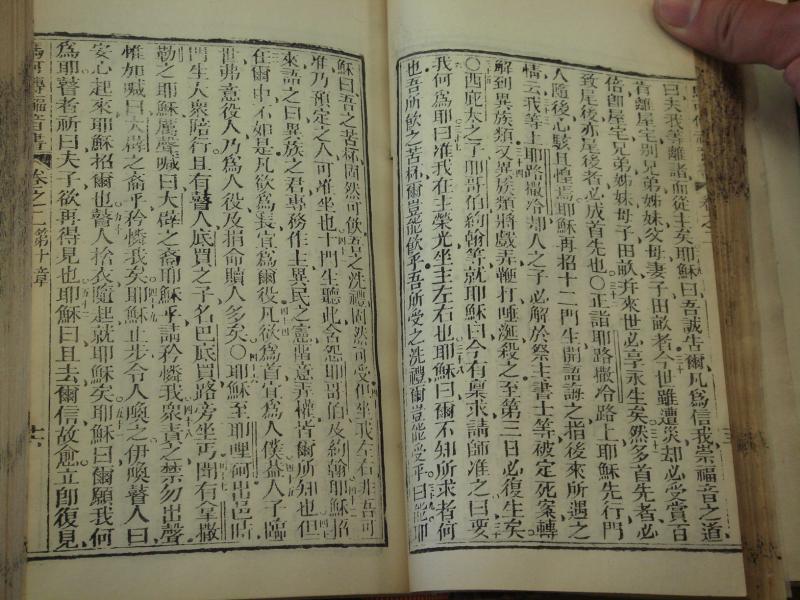 曰夫我等離諸而從主矣耶穌曰吾誠告爾凡爲信我崇福音之道
肯離屋宅別兄弟姊妹父母妻子田畝者今世雖遭災却必受賞百
倍卽屋宅兄弟姊妹母子田畝并來世必享永生矣然多首先者必
致尾後亦尾後者必成首先也〇正詣耶路撒冷路上耶穌先行門
人隨後心駭且惶焉耶穌再招十二門生開語誨之指後來所遇之
情云我等上耶路撒冷却人之子必解於祭主書士等被定死案轉
解到異族類又異族類將戲弄鞭打唾涎殺之至第三日必復生矣
〇西庇太之子耶哥伯約翰等就耶穌曰今有稟求請師准之曰要
我何爲耶曰准我在主榮光坐主左右也耶穌曰爾不知所求者何
也吾所飲之苦杯爾豈能飲乎吾所受之洗禮爾豈能受乎曰能耶
穌曰吾之苦杯固然可飲吾之洗禮固然可受但坐我左右非吾可
准乃預定之人可准坐也十門生聽此含怨耶哥伯及約翰耶穌招
來語之曰異族之君專務作主異民之憲階意弄權皆爾所知也但
在爾中不如是凡欲爲長宜爲爾役凡欲爲首宜爲人僕益人子臨
世弗意役人乃爲人役及捐命贖人多矣〇耶穌至耶哩哥出邑時
門生人衆陪行且有瞽人底買之子名巴底買路旁坐丐聞有拿撒
勒之耶穌厲聲喊曰大辟之裔耶穌乎請矜憐我衆責之禁勿出聲
惟加喊曰大辟之裔乎矜憐我矣耶穌止步令人喚之伊喚瞽人曰
安心起來耶穌招爾也瞽人捨衣隨起就耶穌矣耶穌曰爾願我何
爲耶瞽者祈曰夫子欲再得見也耶穌曰且去爾信故愈立卽復見
馬可傳福音書 卷之二 第十章